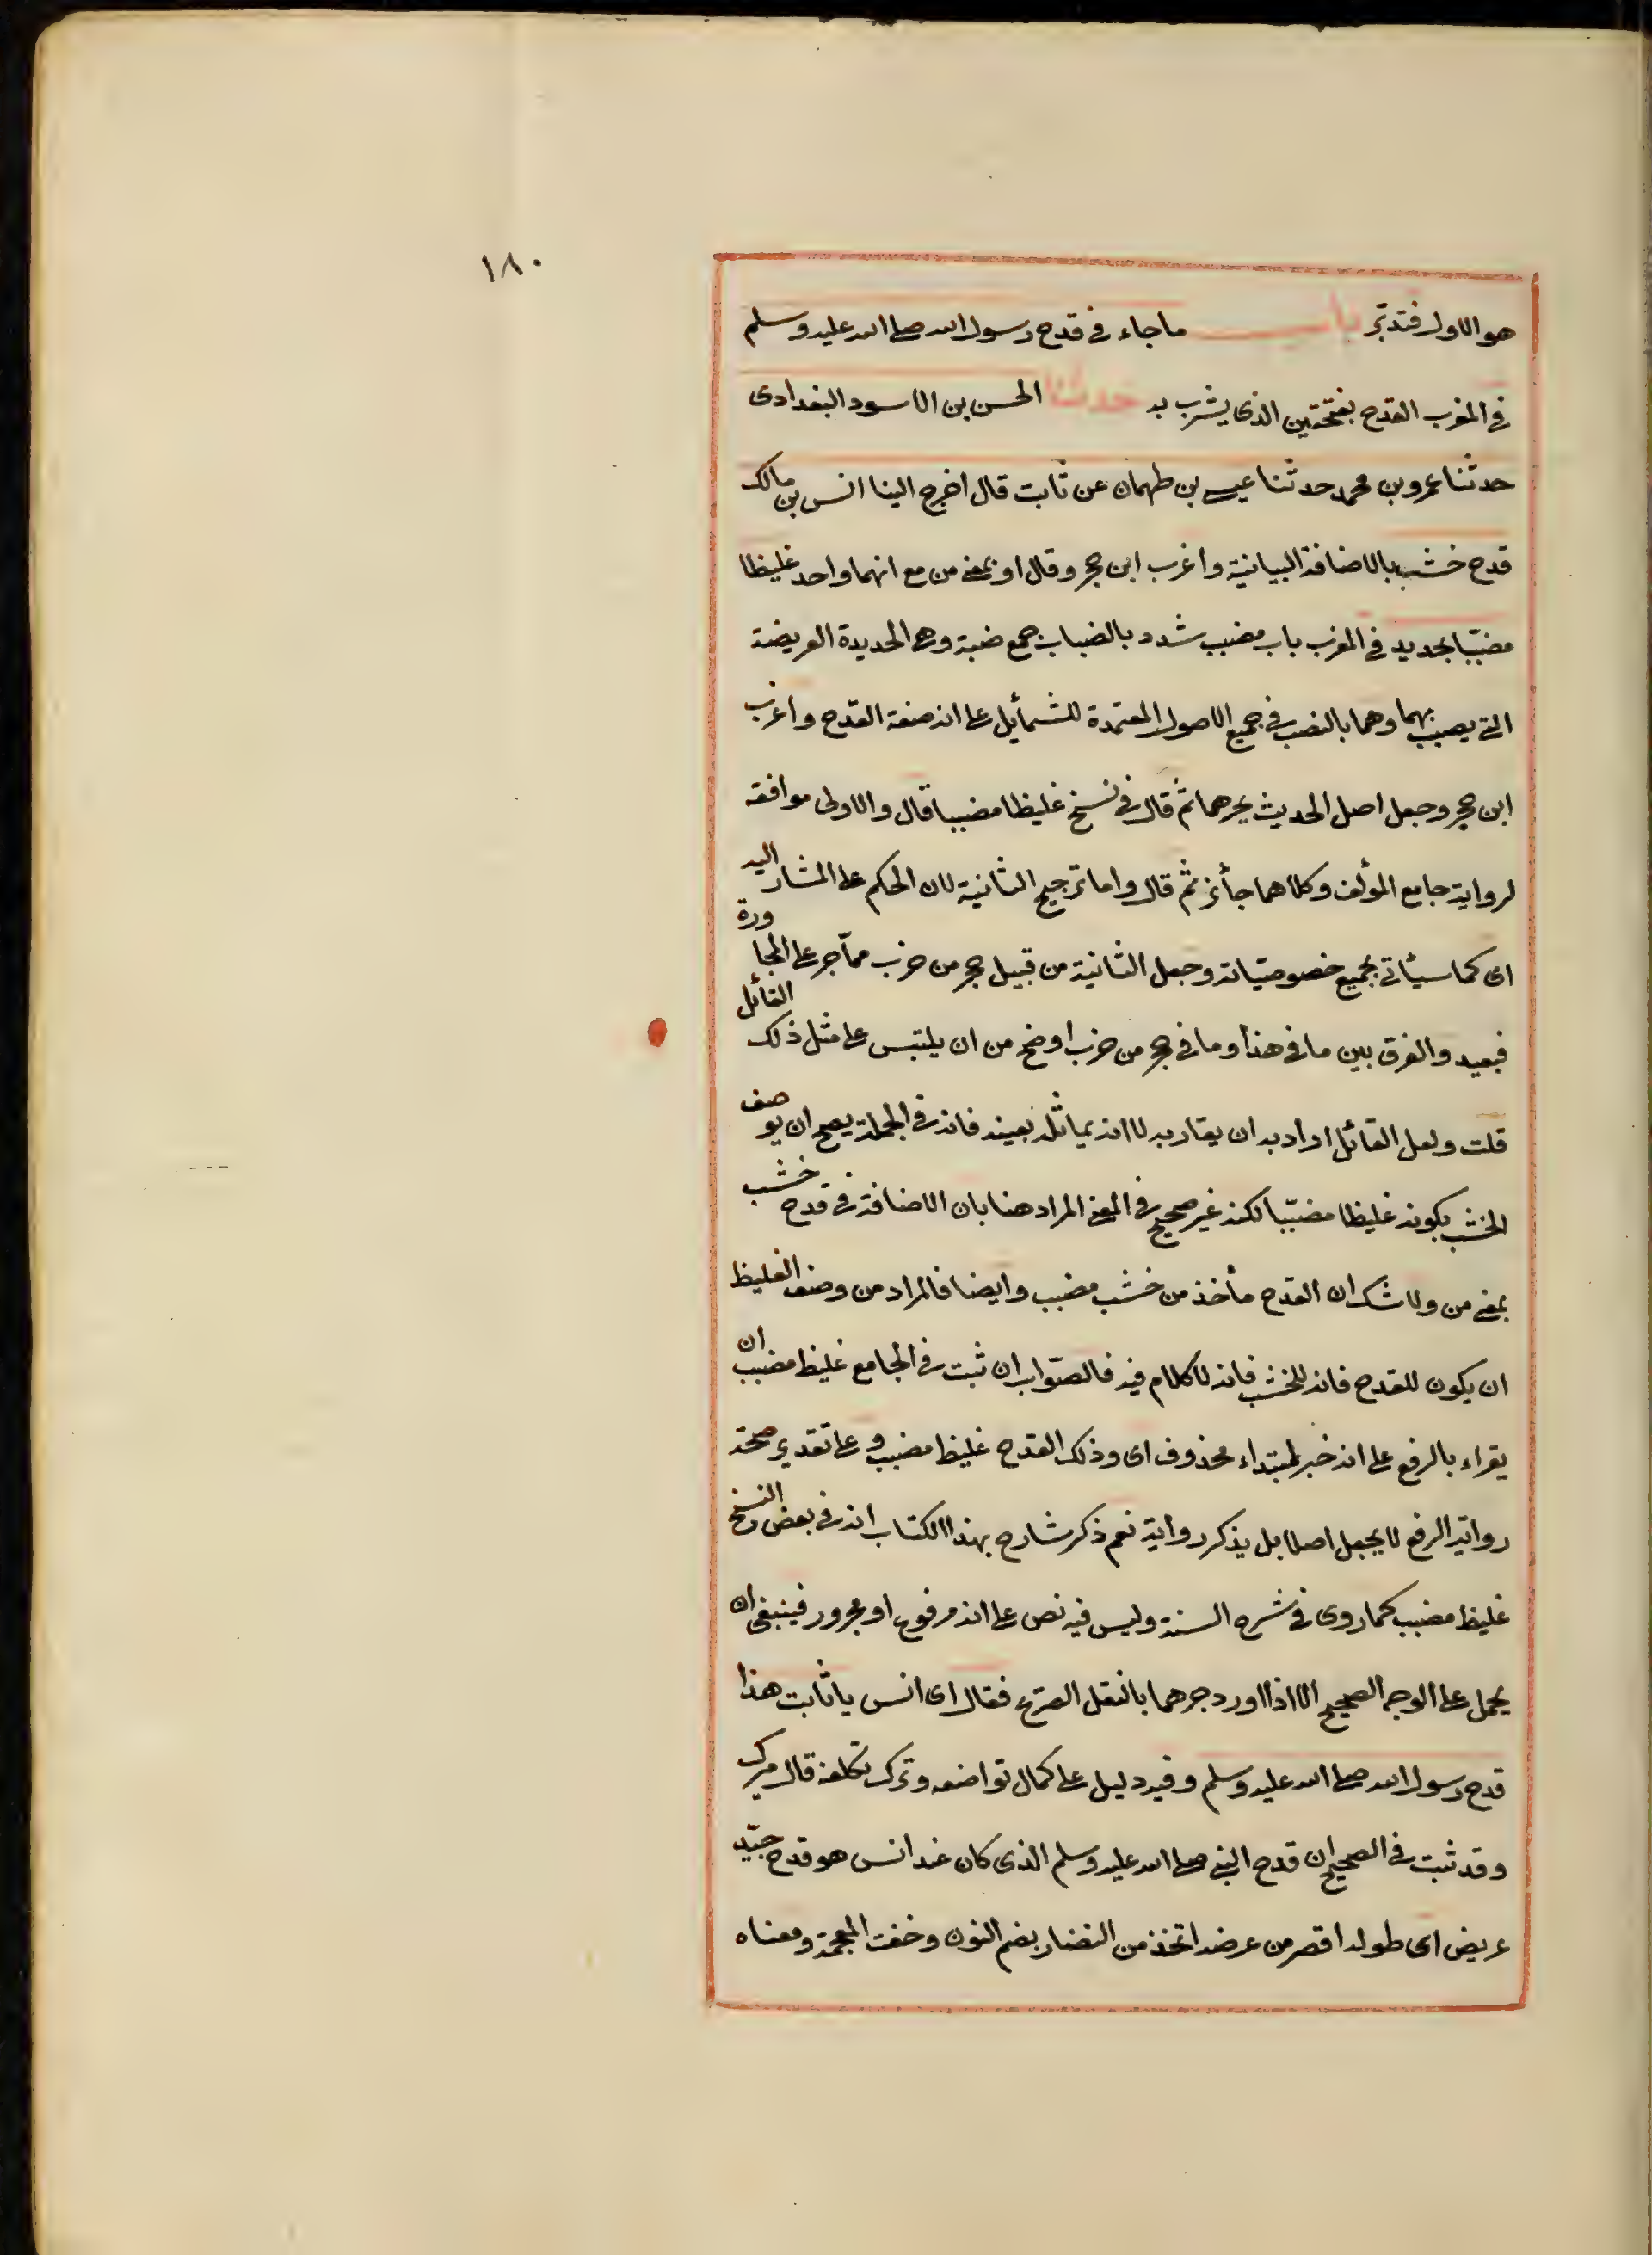 ١٨٠
هو الاول فتدبر باب ما جاء في قدح رسول الله صلى الله عليه وسلم
في المغرب القدح بفتحتين الذى يشرب به حدثنا الحسن بن الاسود البغدادى
حدثنا عمرو بن محمد حدثنا عيسى بن طهمان عن ثابت قال اخرج الينا انس بن مالك
قدح خشب بالاضافة البيانية واغرب ابن حجر وقال او بمعنى من مع انهما واحد غليظا
مضببا بحديد في المغرب باب مضبب شدد بالضباب جمع ضبة وهى الحديدة العريضة
التى يصبب بهما وهما بالنصب في جميع الاصول المعتمدة للشمأيل على انه صفة القدح واغرب
ابن حجر وجعل اصل الحديث بجرهما ثم قال في نسخ غليظا مضببا قال والاولى موافقة
لرواية جامع المؤلف وكلاهما جأئز ثم قال واما ترجيح الثانية لان الحكم على المشار اليه
اى كما سيئاتى بجميع خصوصياته وجعل الثانية من قبيل حجر من خرب مماجر على المجاورة
فبعيد والفرق بين ما في هذا وما في حجر من خرب اوضح من ان يلتبس على مثل ذلك القائل
قلت ولعل القائل اراد به ان يقاربه لا انه يماثله بعينه فانه في الجملة يصح ان يوصف
الخشب بكونه غليظا مضببا لكنه غير صحيح في المعنى المراد هنا بان الاضافة في قدح خشب
بمعنى من ولا شك ان القدح مأخذ من خشب مضبب وايضا فالمراد من وصف الغليظ
ان يكون للقدح فانه للخشب فانه لا كلام فيه فالصواب ان ثبت في الجامع غليظ مضبب ان
يقراء بالرفع على انه خبر لمبتداء محذوف اى وذلك القدح غليظ مضبب وعلى تقدير صحة
رواية الرفع لا يجعل اصلا بل يذكر رواية نعم ذكر شارح بهذا الكتاب انه في بعض النسخ
غليظ مضبب كما روى في شرح السنة وليس فيه نص على انه مرفوع او مجرور فينبغى ان
يحمل على الوجه الصحيح الا اذا اورد جرهما بالنقل الصريح فقال اى انس يا ثابت هذا
قدح رسول الله صلى الله عليه وسلم وفيه دليل على كمال تواضعه وترك تكلفه قال ميرك
وقد ثبت في الصحيح ان قدح النبى صلى الله عليه وسلم الذى كان عند انس هو قدح جيد
عريض اى طوله اقصر من عرضه اتخذ من النضار بضم النون وخفت المعجمة ومعناه